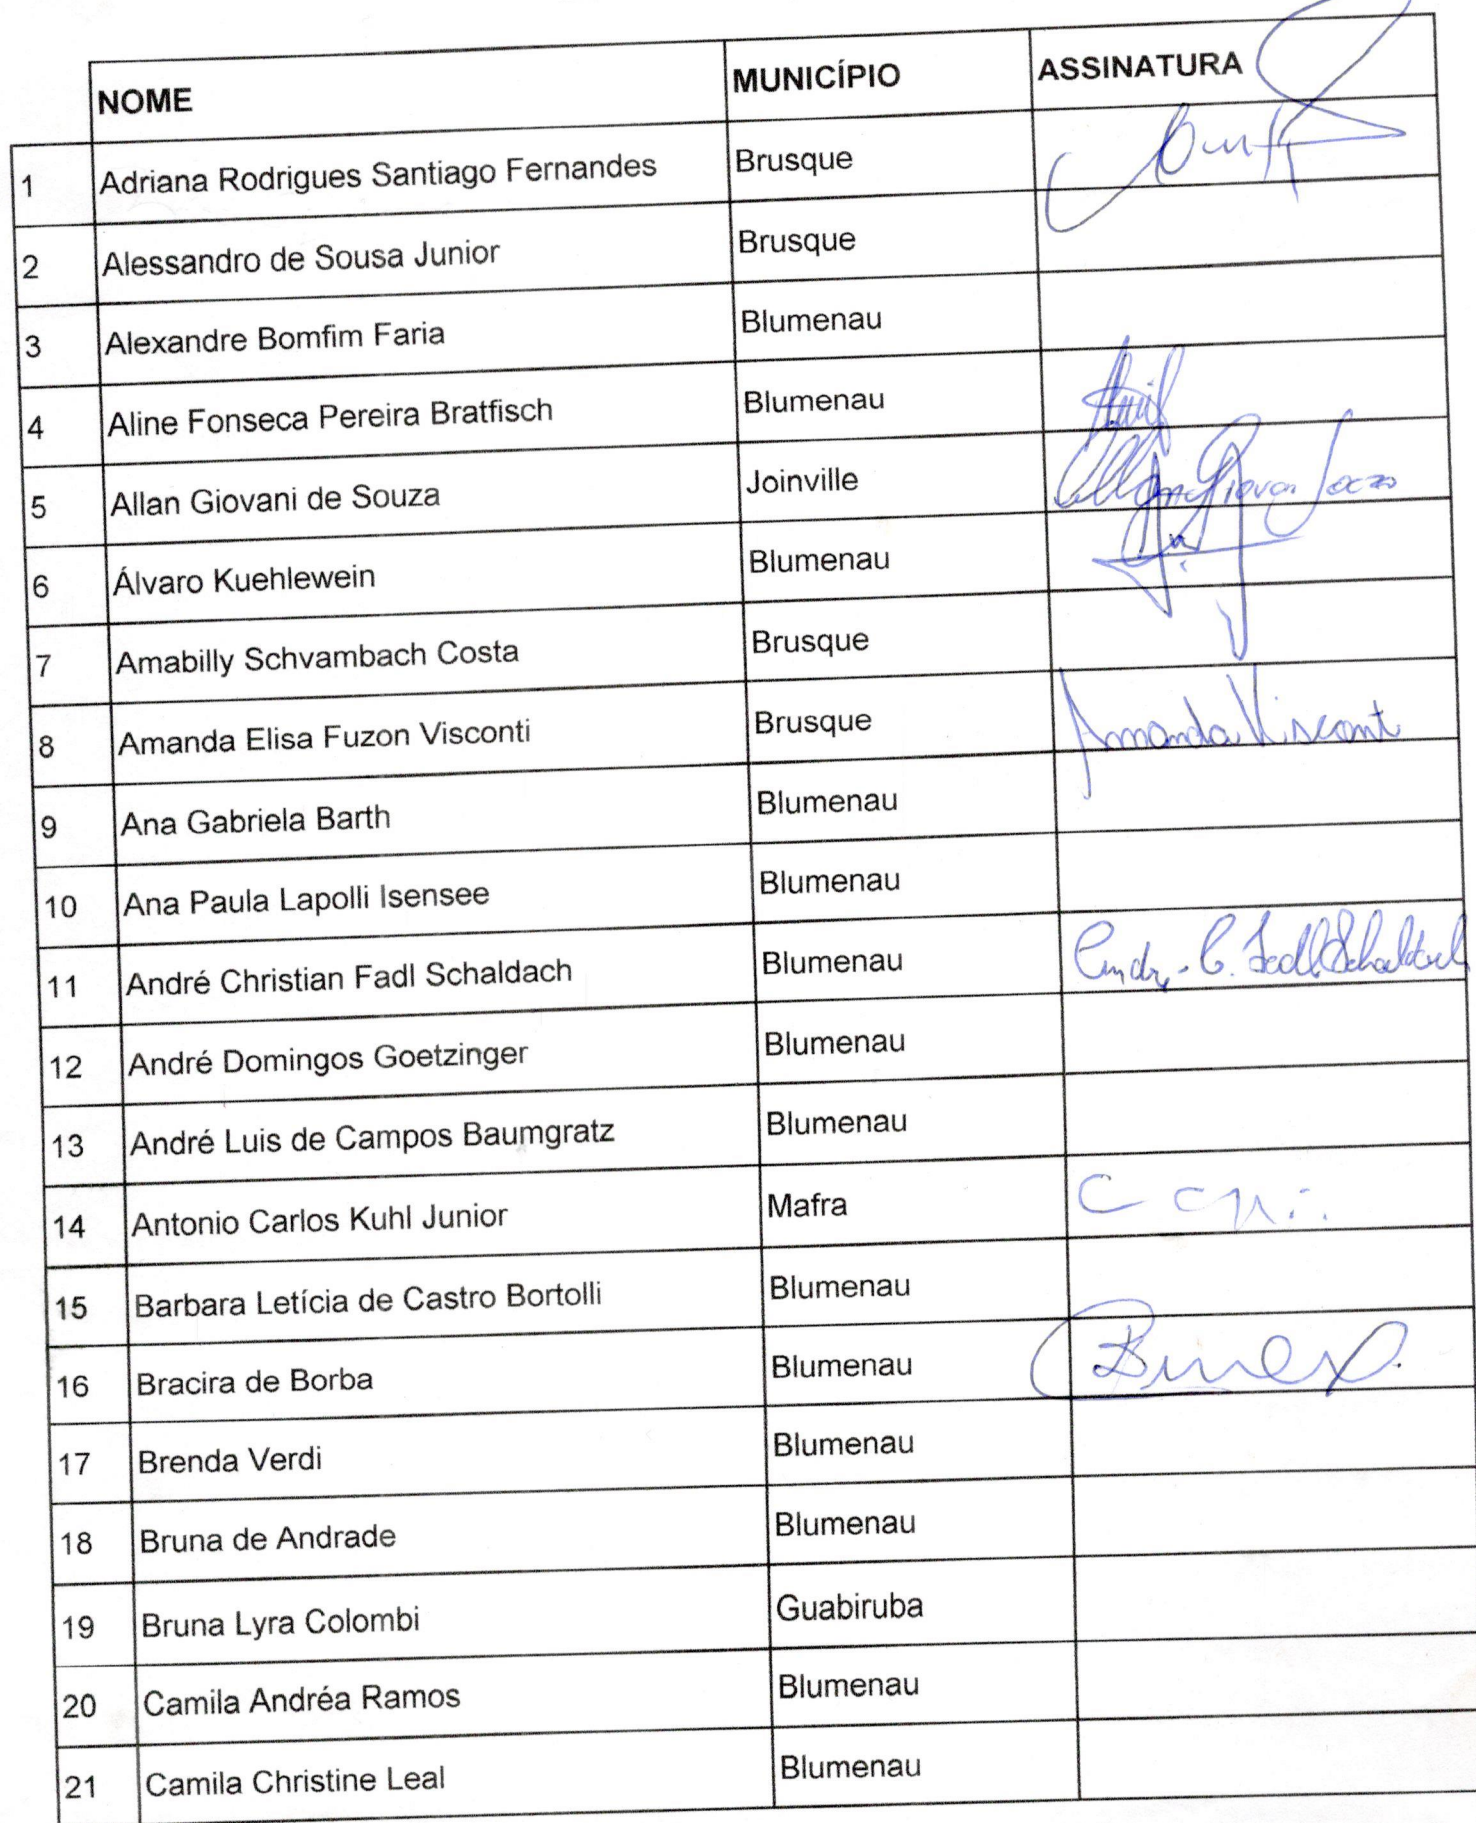 NOME MUNICÍPIO ASSINATURA
1 Adriana Rodrigues Santiago Fernandes Brusque
2 Alessandro de Sousa Junior Brusque
3 Alexandre Bomfim Faria Blumenau
4 Aline Fonseca Pereira Bratfisch Blumenau
5 Allan Giovani de Souza Joinville
6 Álvaro Kuehlewein Blumenau
7 Amabilly Schvambach Costa Brusque
8 Amanda Elisa Fuzon Visconti Brusque Amanda Visconti
9 Ana Gabriela Barth Blumenau
10 Ana Paula Lapolli Isensee Blumenau
11 André Christian Fadl Schaldach Blumenau Andre C. Fadl Schaldach
12 André Domingos Goetzinger Blumenau
13 André Luis de Campos Baumgratz Blumenau
14 Antonio Carlos Kuhl Junior Mafra
15 Barbara Letícia de Castro Bortolli Blumenau
16 Bracira de Borba Blumenau
17 Brenda Verdi Blumenau
18 Bruna de Andrade Blumenau
19 Bruna Lyra Colombi Guabiruba
20 Camila Andréa Ramos Blumenau
21 Camila Christine Leal Blumenau